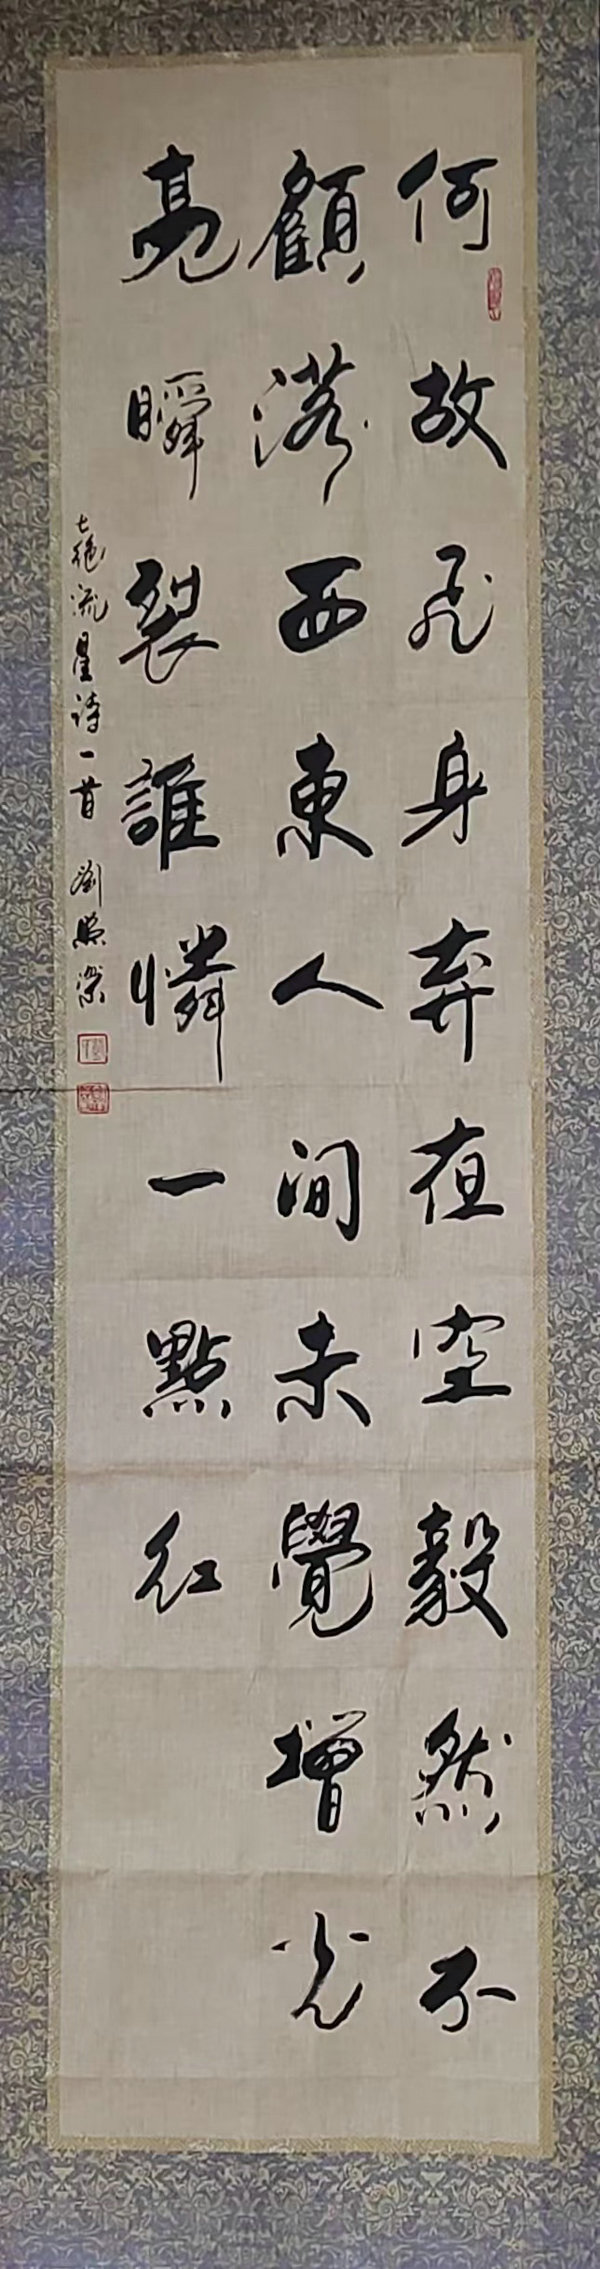 何故飛身弃夜空毅然不
顧落西東人间未覺增光
亮瞬裂誰憐一點紅
七绝流星诗一首 劉